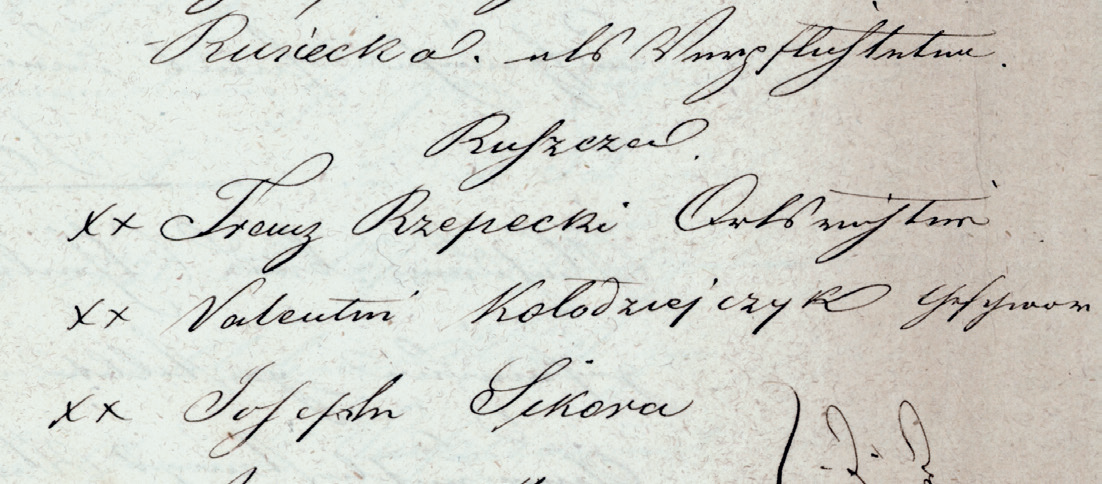 Rusiecka. als Verpflichteter.
Ruszcza.
xx Franz Rzepecki Ortsrichter
xx Valentin Kołodziejczyk Geschwor
xx Joseph Sikora